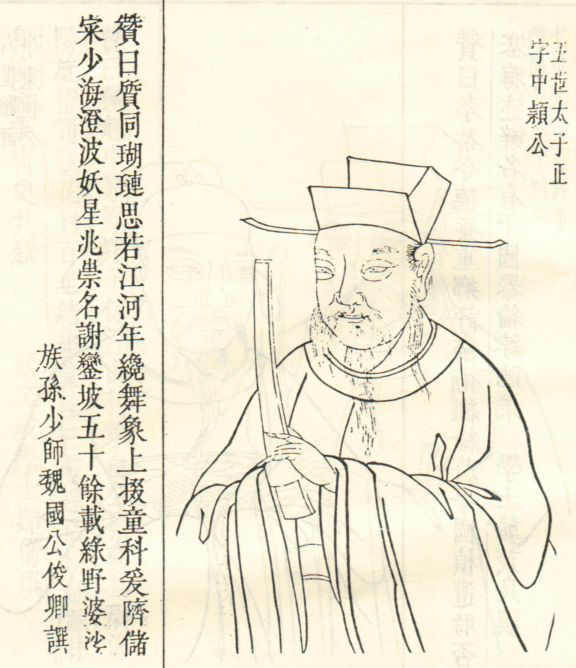 五世太子正
字中穎公
贊曰質同瑚璉思若江河年纔舞象上掇童科爰隮儲
寀少海澄波妖星兆祟名謝鑾坡五十餘載綠野婆沙
族孫少師魏國公俊卿譔